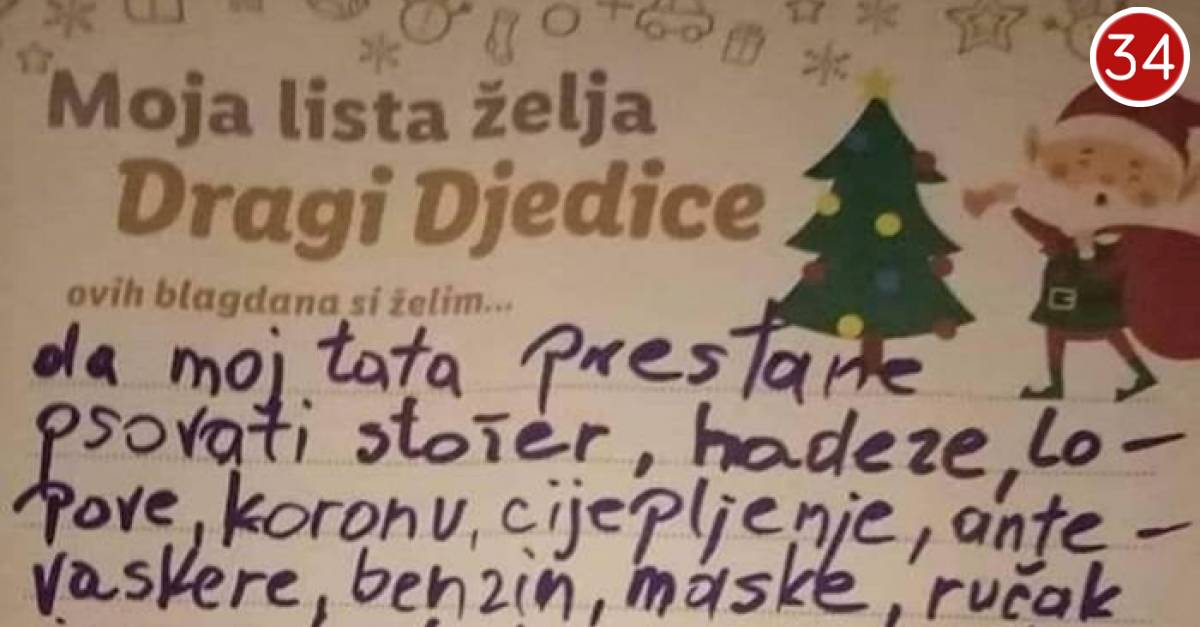 34
Moja lista želja
Dragi Djedice
ovih blagdana si želim...
da moj tata prestane
psovati stožer, hadeze, lo-
pove, koronu, cijepljenje, ante-
vaskere, benzin, maske, ručak